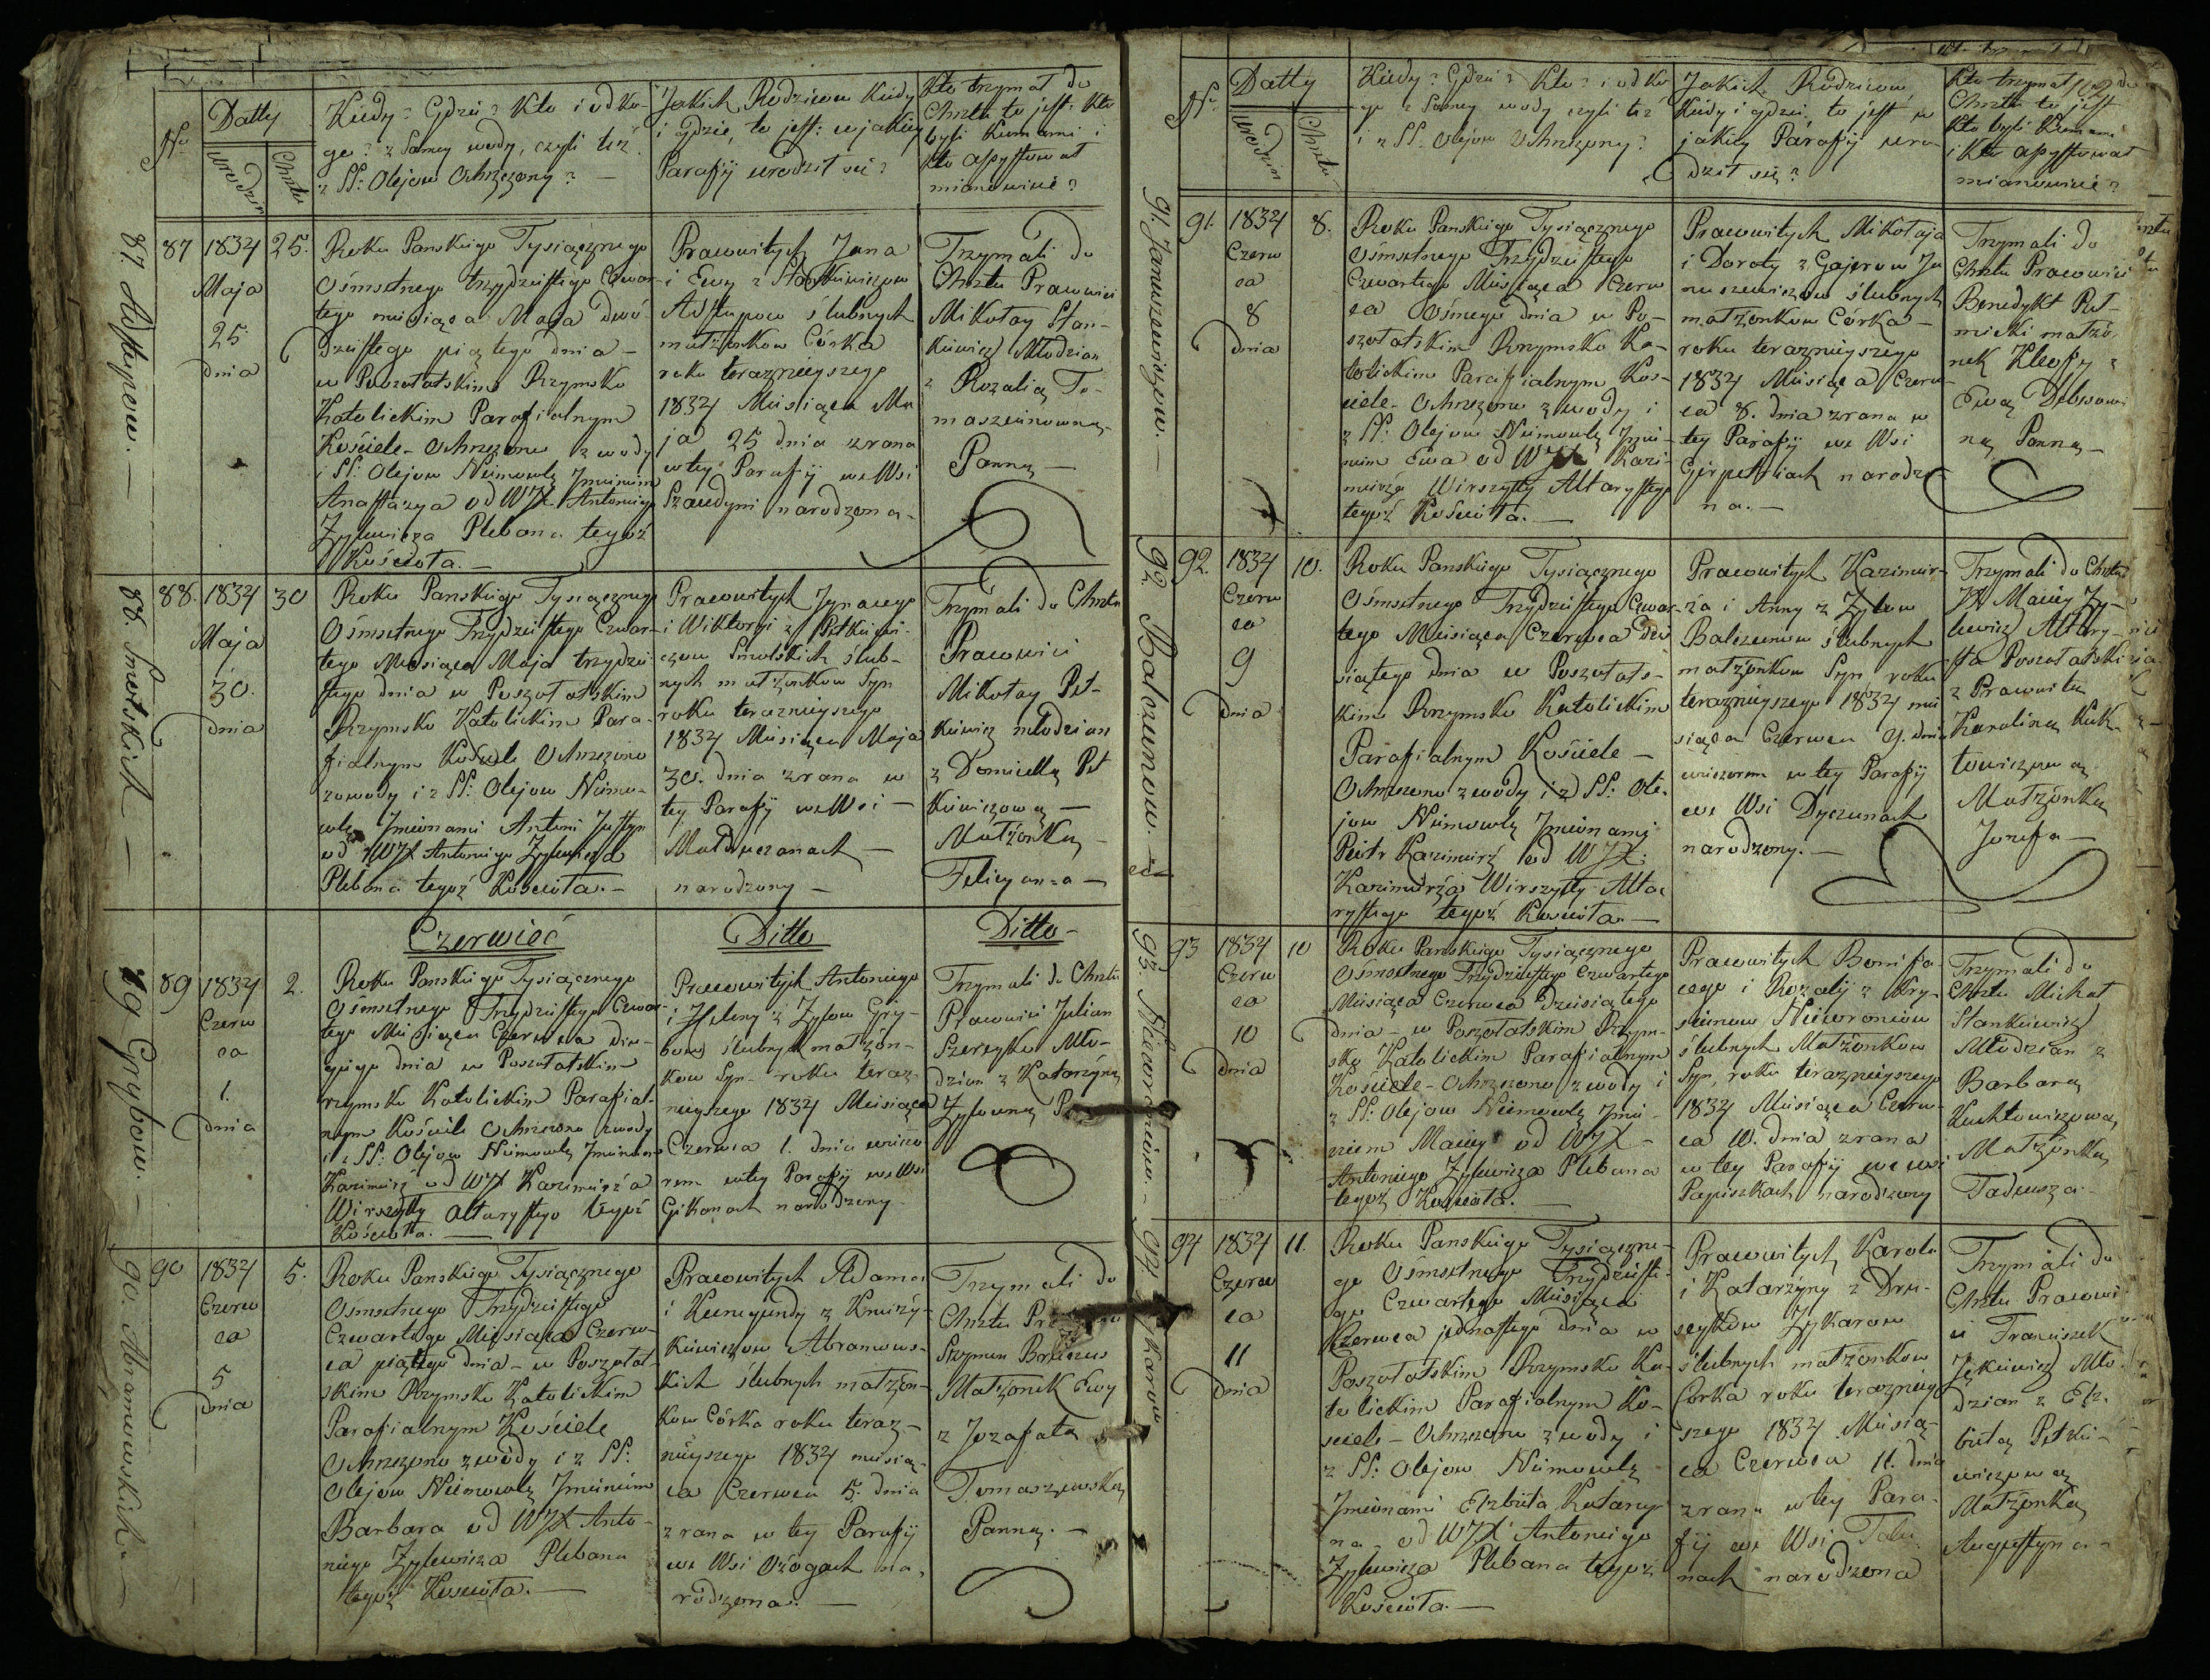 No
Datty
urodzin
Chrztu
Kiedy? Gdzie? Kto i od ko-
go? z Samey wody, czyli też
z SS: Olejow Ochrzczony? —
Jakich Rodzicow Kiedy
i gdzie, to jest: w jakiey
Parafij urodził się?
Kto trzymał do
Chrztu to jest: Kto
byli Kumami i
kto assystował
mianowicie?
87.
87
1834
Maja
25
dnia
25.
Roku Panskiego Tysiącznego
Ośmsetnego trzydziestego Czwar-
tego miesiąca Maja dwó-
dziestego piątego dnia —
w Poszołatskim Rzymsko
Katolickim Parafialnym
Kościele Ochrzczono z wody
i SS: Olejow Niemowlę Imieniem
Anastazya od WJX Antoniego
Zylewicza Plebana tegoż
Kościoła. —
Prawowitych Jana
i Ewy z
ślubnych
małżonkow Córka
roku teraznieyszego
1834 Miesiąca Ma
ja 25 dnia zrana
w tey Parafij we Wsi
narodzona.
Trzymali do
Chrztu Pracowici
Mikołay Stan-
kiewicz Młodzian
z Rozalią To-
maszeiunowną
Panną —
88. Smolskich —
88.
1834
Maja
30.
dnia
30
Roku Panskiego Tysiącznego
Ośmsetnego Trzydziestego Czwar-
tego Miesiąca Maja trzydzie
stego dnia w Poszołatskim
Rzymsko Katolickim Para-
fialnym Kościele Ochrzczono
zwody i z SS: Olejow Niemo-
wlę Imionami Antoni Justyn
od WJX Antoniego Zylewicza
Plebana tegoż Kościoła. —
Pracowitych Ignacego
i Wiktorgi z Petkiewi-
czow Smolskich ślub-
nych małżonkow Syn
roku teraznieyszego
1834 Miesiąca Maja
30. dnia zrana w
tey Parafij we Wsi —
narodzony —
Trzymali do Chrztu
Pracowici
Mikołay Pet-
kiewicz młodzian
z Domicellą Pet
kiewiczową —
Małżonką
Felicyana —
Czerwieć
Ditto
Ditto-
89 Grybow. —
89
1834
Czerw
ca
1.
dnia
2.
Roku Panskiego Tysiącznego
Ośmsetnego Trzydziestego Czwar-
tego Miesiąca Czerwca dru-
giego dnia w Poszołatskim
rzymsko Katolickim Parafial-
nym Kościele Ochrzczono zwody
i z SS: Olejow Niemowlę Imieniem
Kazimierz od WJX Kazimierza
Wirszyłły Altarystego tegoż
Kościoła. —
Pracowitych Antoniego
i Heleny z Zyłow Gry-
bow ślubnych małżon-
kow Syn roku teraz-
nieyszego 1834 Miesiąca
Czerwca 1. dnia wieczo
rem wtey Parafij we Wsi
Gikanach narodzony
Trzymali do Chrztu
Pracowici Julian
Szerzyko Mło-
dzian z Katarzyną
Zyłowną
90. Abramowskich —
90
1834
Czerw
ca
5
dnia
5.
Roku Panskiego Tysiącznego
Ośmsetnego Trzydziestego
Czwartego Miesiąca Czerw-
ca piątego dnia — w Poszołat-
skim Rzymsko Katolickim
Parafialnym Kościele
Ochrzczono zwody i z SS:
Olejow Niemowlę Imieniem
Barbara od WJX Anto-
niego Zylewicza Plebana
tegoż Kościoła. —
Pracowitych Adama
i Kunegundy z Kmiży-
kiewiczow Abramows-
kich ślubnych małżon-
kow Córka roku teraz-
nieyszego 1834 miesią-
ca Czerwca 5. dnia
zrana w tey Parafij
we Wsi Ożogach na-
rodzona. —
Trzymali do
Chrztu
Szymon
Małżonek Ewy
z Jozafatą
Tomaszewską
Panną. —
No
Datty
urodzin
Chrztu
Kiedy? Gdzie? Kto? i od ko
go z Samey wody czyli też
i z SS: Olejow Ochrzczony?
Jakich Rodzicow
Kiedy i gdzie, to jest w
jakiey Parafij uro
dził się?
Kto trzymał do
Chrztu to jest
Kto byli Kumami
i kto assystował
mianowicie?
91. Januszewiczow. —
91.
1834
Czerw
ca
8
dnia
8.
Roku Panskiego Tysiącznego
Ośmsetnego Trzydziestego
Czwartego Miesiąca Czerw
ca Ośmego dnia w Po-
szołatskim Rzymsko Ka-
tolickim Parafialnym Koś-
ciele Ochrzczono z wody i
z SS: Olejow Niemowlę Imie-
niem Ewa od WJX Kazi-
mierza Wirszyłły Altarystego
tegoż Kościoła. —
Pracowitych Mikołaja
i Doroty z Gajerow Ja
nuszewiczow ślubnych
małżonkow Córka —
roku teraznieyszego
1834 Miesiąca Czerw-
ca 8. dnia zrana w
tey Parafij we Wsi
narodzo-
na. —
Trzymali do
Chrztu Pracowici
Benedykt Pet-
nicki małżo-
nek Kleofy z
Ewą
ną Panną —
92. Balczunow. —
92.
1834
Czerw
ca
9
dnia
10.
Roku Panskiego Tysiącznego
Ośmsetnego Trzydziestego Czwar-
tego Miesiąca Czerwca Dzie
siątego dnia w Poszołats-
kim Rzymsko Katolickim
Parafialnym Kościele —
Ochrzczono zwody i z SS: Ole-
jow Niemowlę Imionami
Piotr Kazimierz od WJX.
Kazimierza Wirszyłły Alta-
rystego tegoż Kościoła. —
Pracowitych Kazimier-
za i Anny z Zyłow
Balczunow ślubnych
małżonkow Syn, roku
teraznieyszego 1834 mie
siąca Czerwca 9. dnia
wieczorem w tey Parafij
we Wsi Dyczunach
narodzony. —
Trzymali do Chrztu
JX Maciey Zy-
lewicz Altary-
sta Poszołatski
z Pracowitą
Karoliną Kuk-
towiczową
Małżonką
Jozefa —
93. Niewroniow. —
93
1834
Czerw
ca
10
dnia
10
Roku Panskiego Tysiącznego
Ośmsetnego Trzydziestego Czwartego
Miesiąca Czerwca Dziesiątego
dnia — w Poszołatskim Rzym-
sko Katolickim Parafialnym
Kościele Ochrzczono z wody i
z SS: Olejow Niemowlę Imie-
niem Maciey od WJX —
Antoniego Zylewicza Plebana
tegoż Kościoła. —
Pracowitych Bonifa-
cego i Rozalij z Kry-
sciunow Niewroniow
ślubnych Małżonkow
Syn, roku teraznieyszego
1834 Miesiąca Czerw-
ca 10. dnia zrana
w tey Parafij we wsi
Papiszkach narodzony
Trzymali do
Chrztu Michał
Stankiewicz
Młodzian z
Barbarą
Kuchtowiczową
Małżonką
Tadeusza.
94. Zykarow
94
1834
Czerw
ca
11
dnia
11.
Roku Panskiego Tysiączne-
go Ośmsetnego Trzydzieste-
go Czwartego Miesiąca
Czerwca jednastego dnia w
Poszołatskim Rzymsko Ka-
tolickim Parafialnym Ko-
sciele — Ochrzczono z wody i
z SS: Olejow Niemowlę
Imionami Elzbieta Katarzy-
na od WJX Antoniego
Zylewicza Plebana tegoż
Kościoła. —
Pracowitych Karola
i Katarzyny z Dru-
seykow Zykarow
ślubnych małżonkow
Corka roku teraźniey
szego 1834 Miesią-
ca Czerwca 11. dnia
zrana w tey Para-
fij we Wsi
nach narodzona
Trzymali do
Chrztu Pracowi
ci Franciszek
Mło-
dzian z Elz-
bietą Petkie-
wiczową
Małżonką
Augustyna —